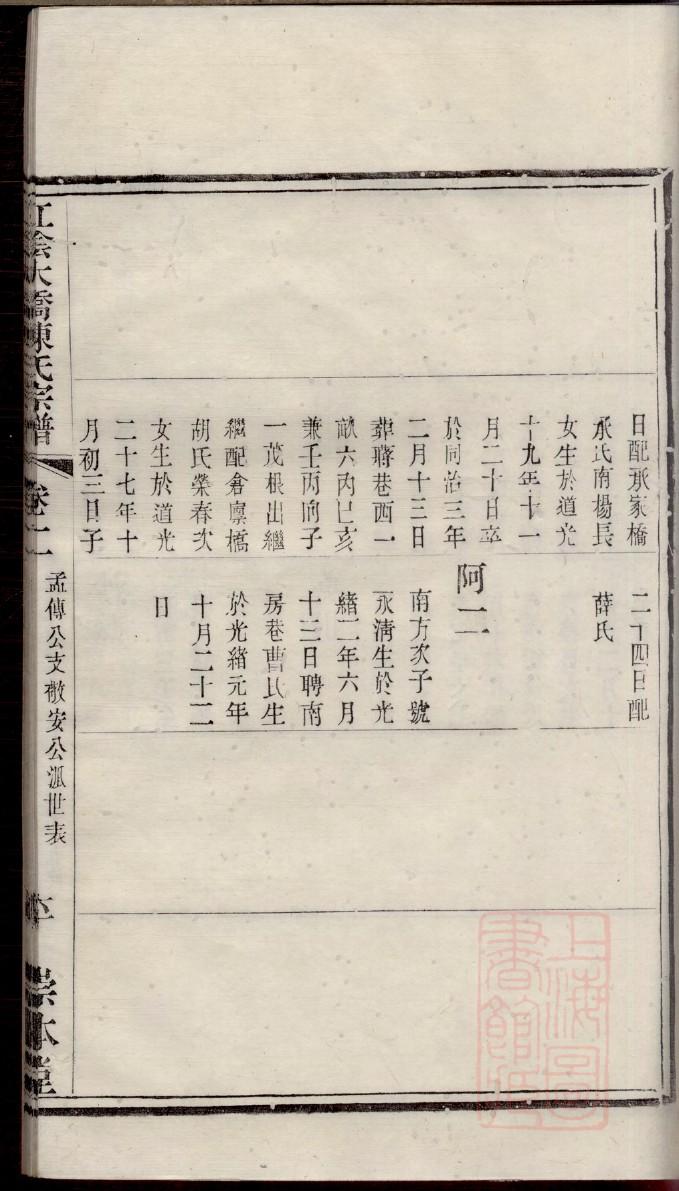 日配承家橋
承氏南揚長
女生於道光
十九年十一
月二十日卒
於同治三年
二月十三日
葬蔣巷西一
畝六內巳亥
兼壬丙向子
一茂根出繼
繼配倉廩橋
胡氏榮春次
女生於道光
二十七年十
月初三日子
二十四日配
薛氏
阿二
南方次子號
永清生於光
緒二年六月
十三日聘南
房巷曹氏生
於光緒元年
十月二十二
日
江陰大橋陳氏宗譜
卷二
孟傳公支敬安公派世表
崇本堂
上海圖書館藏